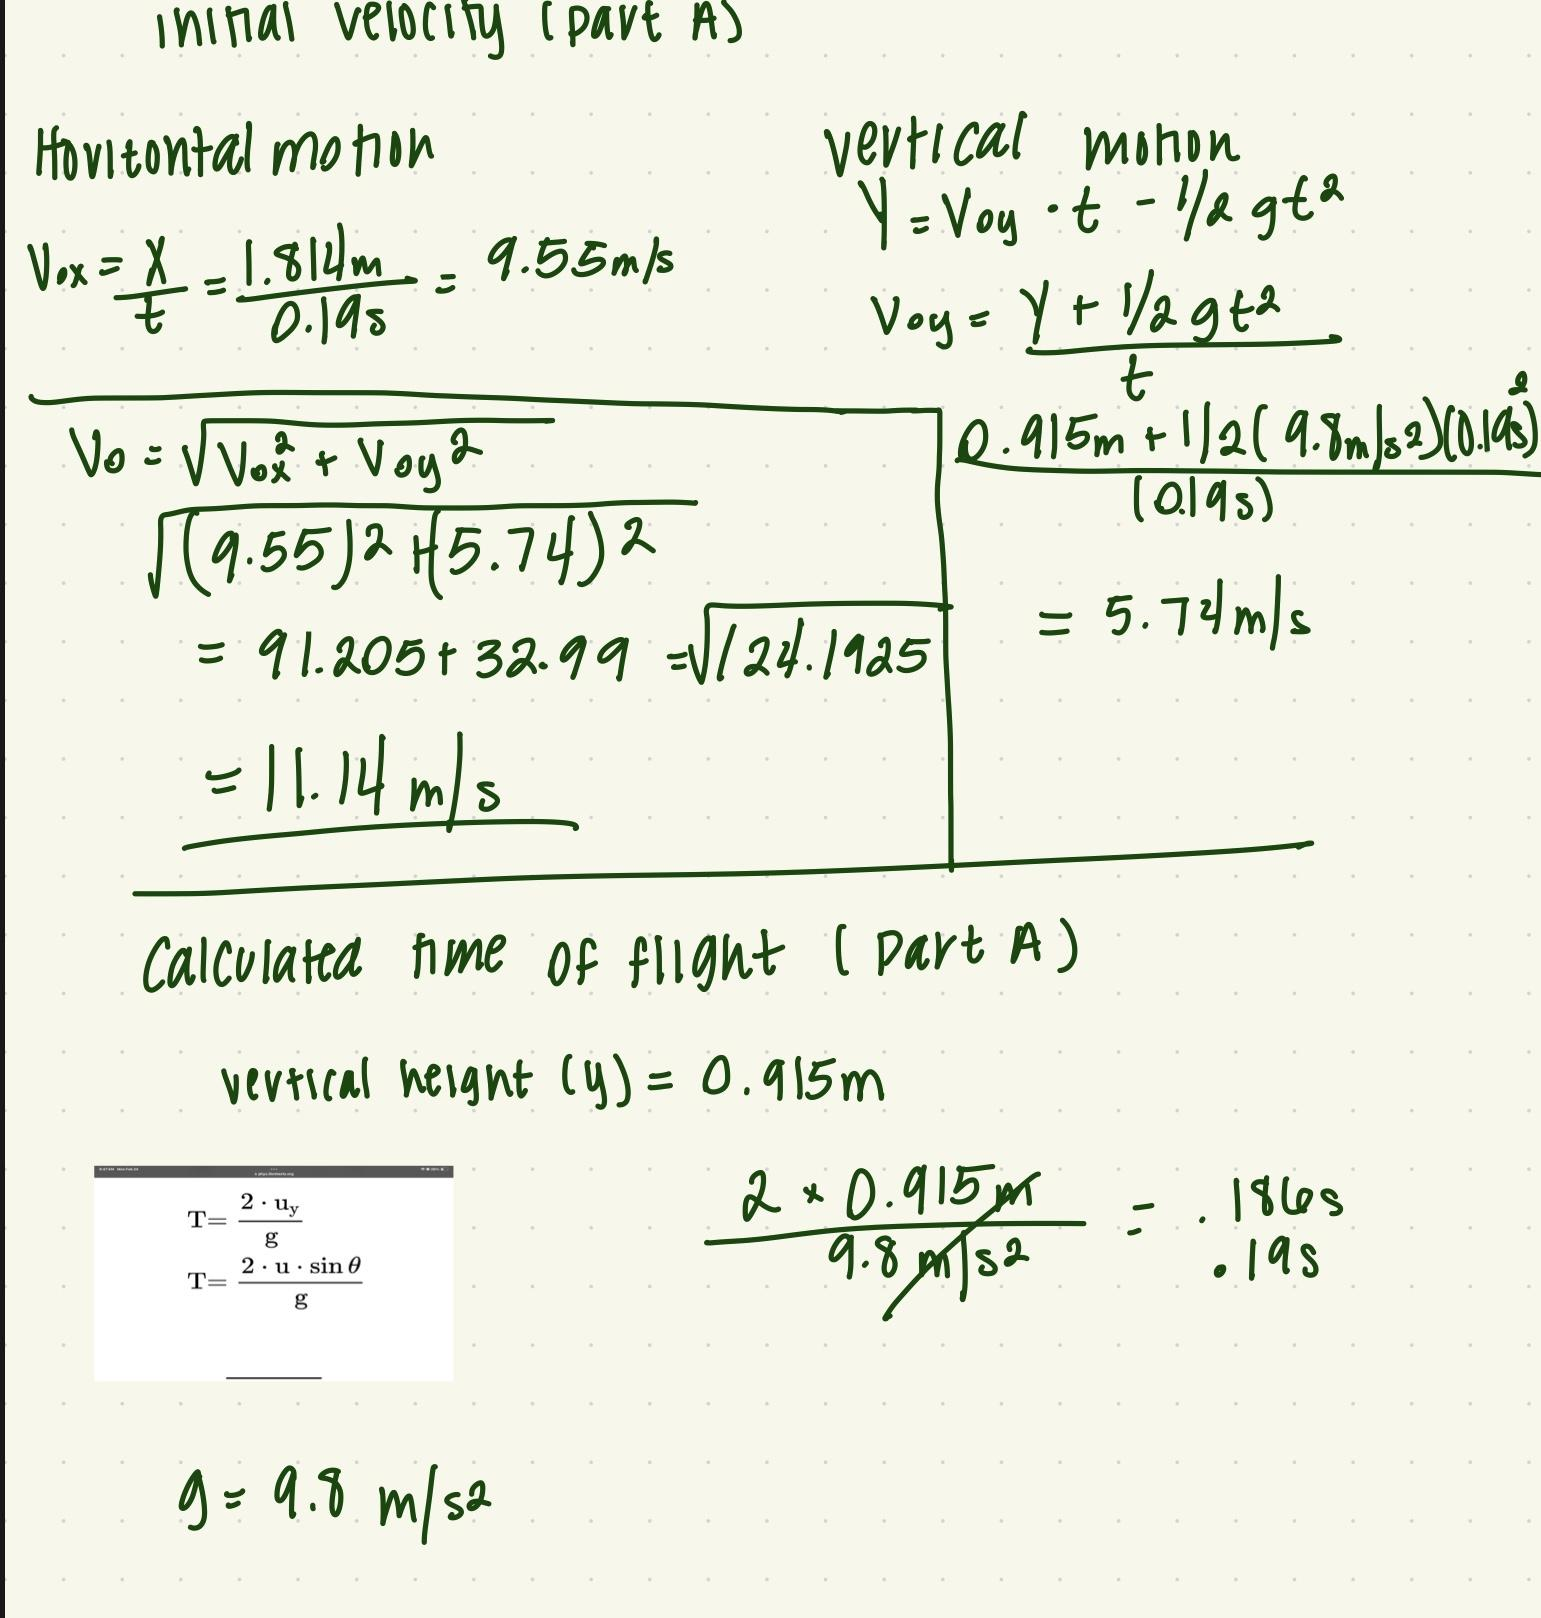 initial velocity (part A)
Horitontal motion
Vox = X/t = 1.814m/0.19s = 9.55m/s
vertical motion
Y = Voy · t - 1/2 gt²
Voy = Y + 1/2 gt²/t
0.915m + 1/2( 9.8m/s2)(0.19s)²/(0.19s)
= 5.74m/s
Vo = √Vox² + Voy²
√(9.55)² + (5.74)²
= 91.205 + 32.99 = √124.1925
= 11.14 m/s
Calculated time of flight ( Part A)
vertical height (y) = 0.915m
T= 2 · uy/g
T= 2 · u · sin θ/g
2 * 0.915m/9.8 m/s2 = .186s
.19s
g = 9.8 m/s2